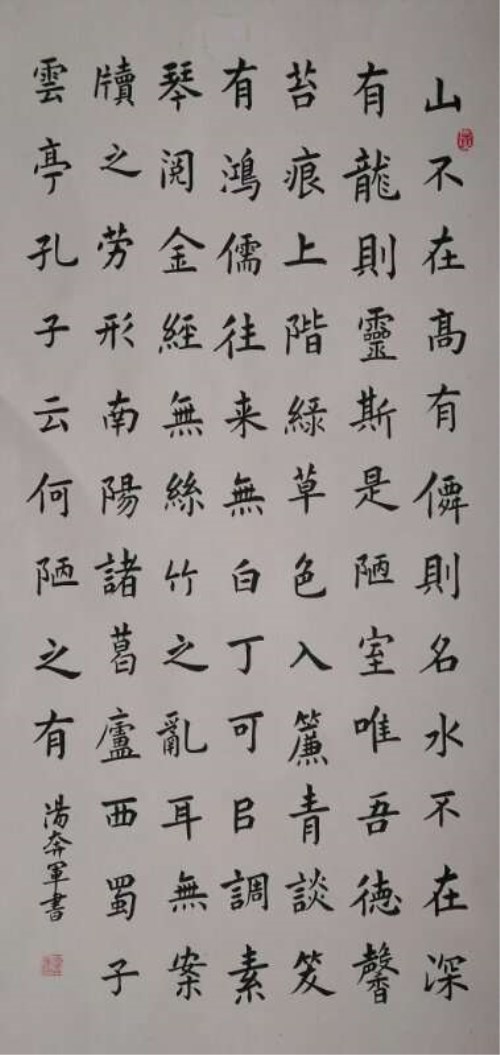 山不在髙有僊則名水不在深
有龍則靈斯是陋室唯吾徳馨
苔痕上階緑草色入簾青談笑
有鴻儒往来無白丁可㠯調素
琴阅金經無絲竹之亂耳無案
牘之劳形南陽諸葛廬西蜀子
雲亭孔子云何陋之有
湯奔軍書